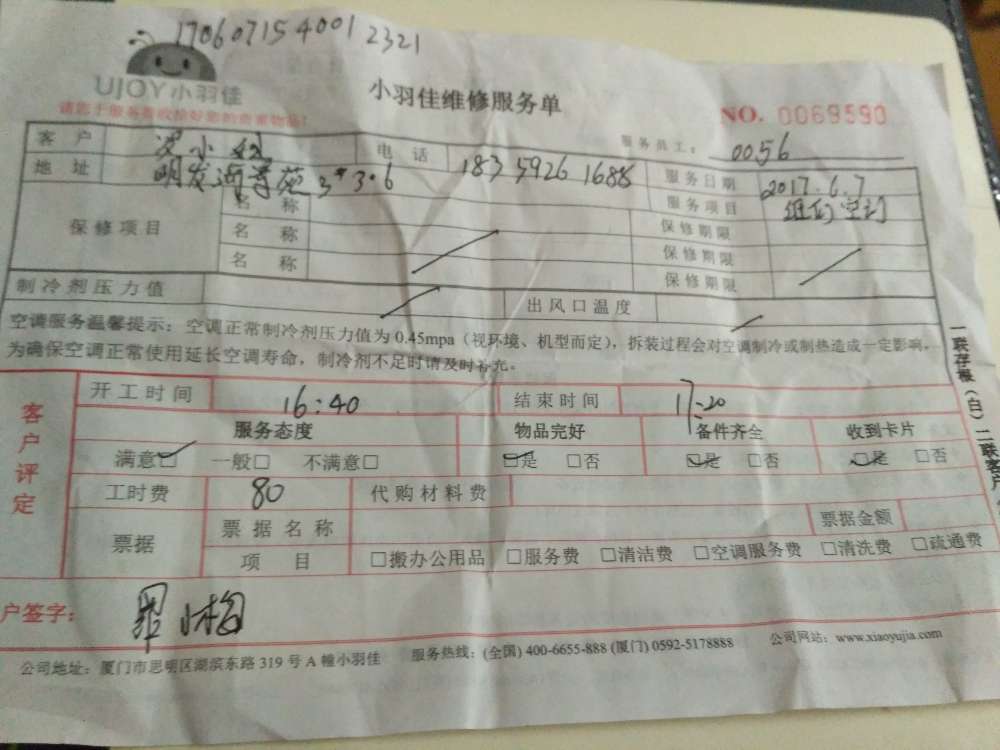 170607154001 2321
UJOY小羽佳
小羽佳维修服务单
NO. 0069590
服务员工: 0056
客户 小 电话 183 5926 1688 服务日期 2017.6.7
地址 明发海景苑 3# 3·6 服务项目
保修项目 名称 保修期限
名称 保修期限
名称 保修期限
制冷剂压力值 出风口温度
空调服务温馨提示: 空调正常制冷剂压力值为 0.45mpa(视环境、机型而定),拆装过程会对空调制冷或制热造成一定影响,
为确保空调正常使用延长空调寿命,制冷剂不足时请及时补充。
客户评定
开工时间 16:40 结束时间 17:20
服务态度 物品完好 备件齐全 收到卡片
满意☑ 一般□ 不满意□ ☑是 □否 ☑是 □否 ☑是 □否
工时费 80 代购材料费
票据 票据名称 票据金额
项目 □搬办公用品 □服务费 □清洁费 □空调服务费 □清洗费 □疏通费
户签字:
公司地址:厦门市思明区湖滨东路 319 号 A 幢小羽佳 服务热线:(全国) 400-6655-888 (厦门) 0592-5178888 公司网站:www.xiaoyujia.com
一联存根(白)二联客户